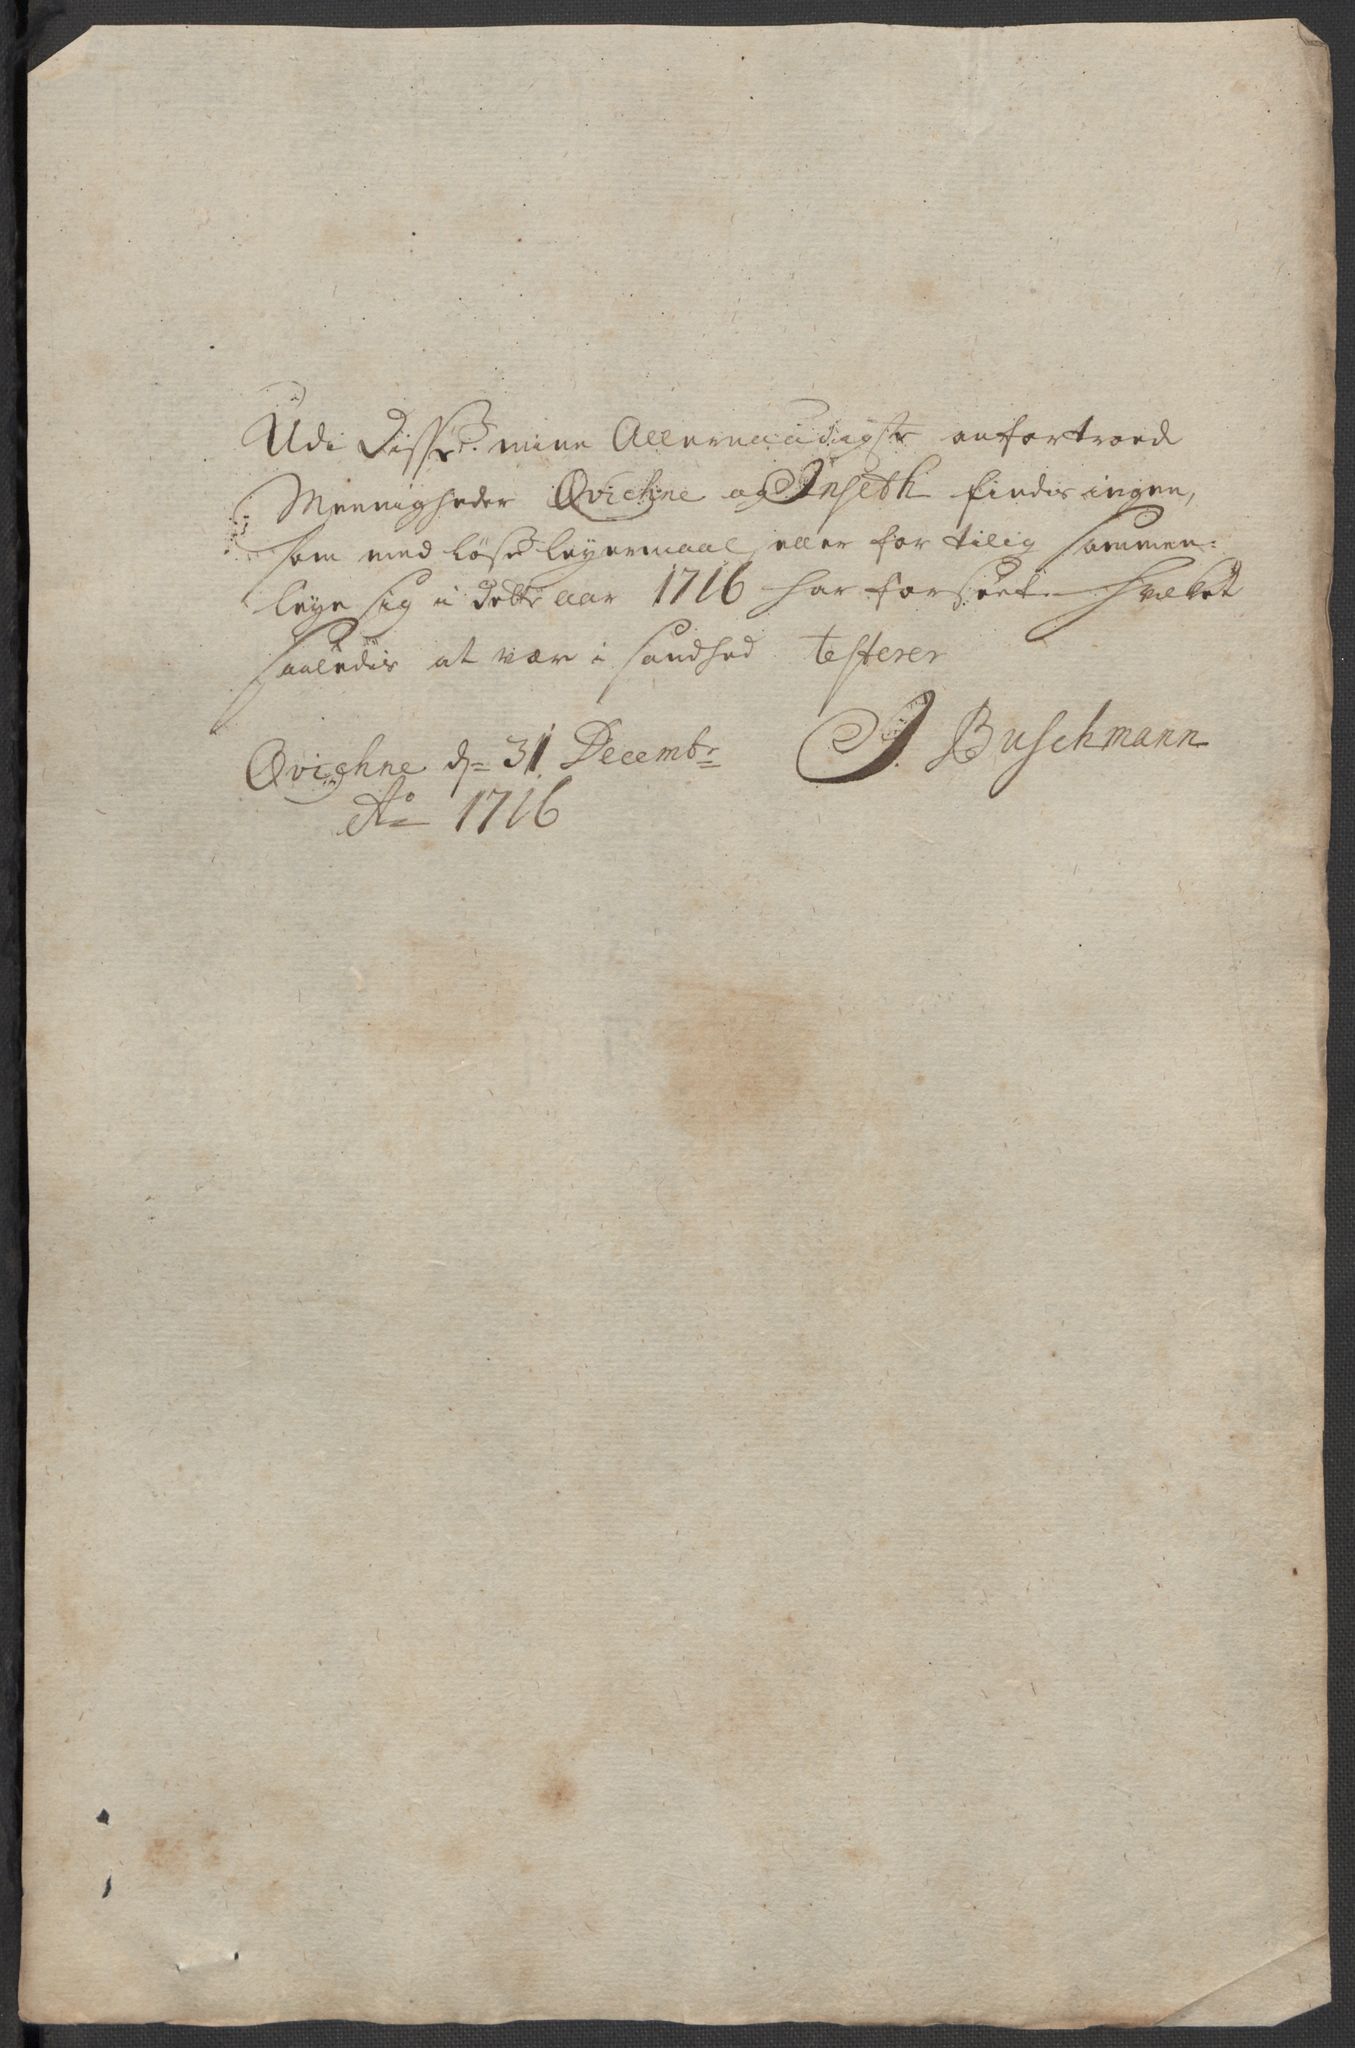 Udi Disse mine Allernaadigst anfortroed
Menigheder Qviehne og Inseth findis ingen,
som med løse leyermaal eller for tilig sammen-
leye sig i dette aar 1716 har forseet hvilket
saaledis at være i sandhed testerer
Qviehne d= 31 Decembr
J. Buschmann
Ao 1716